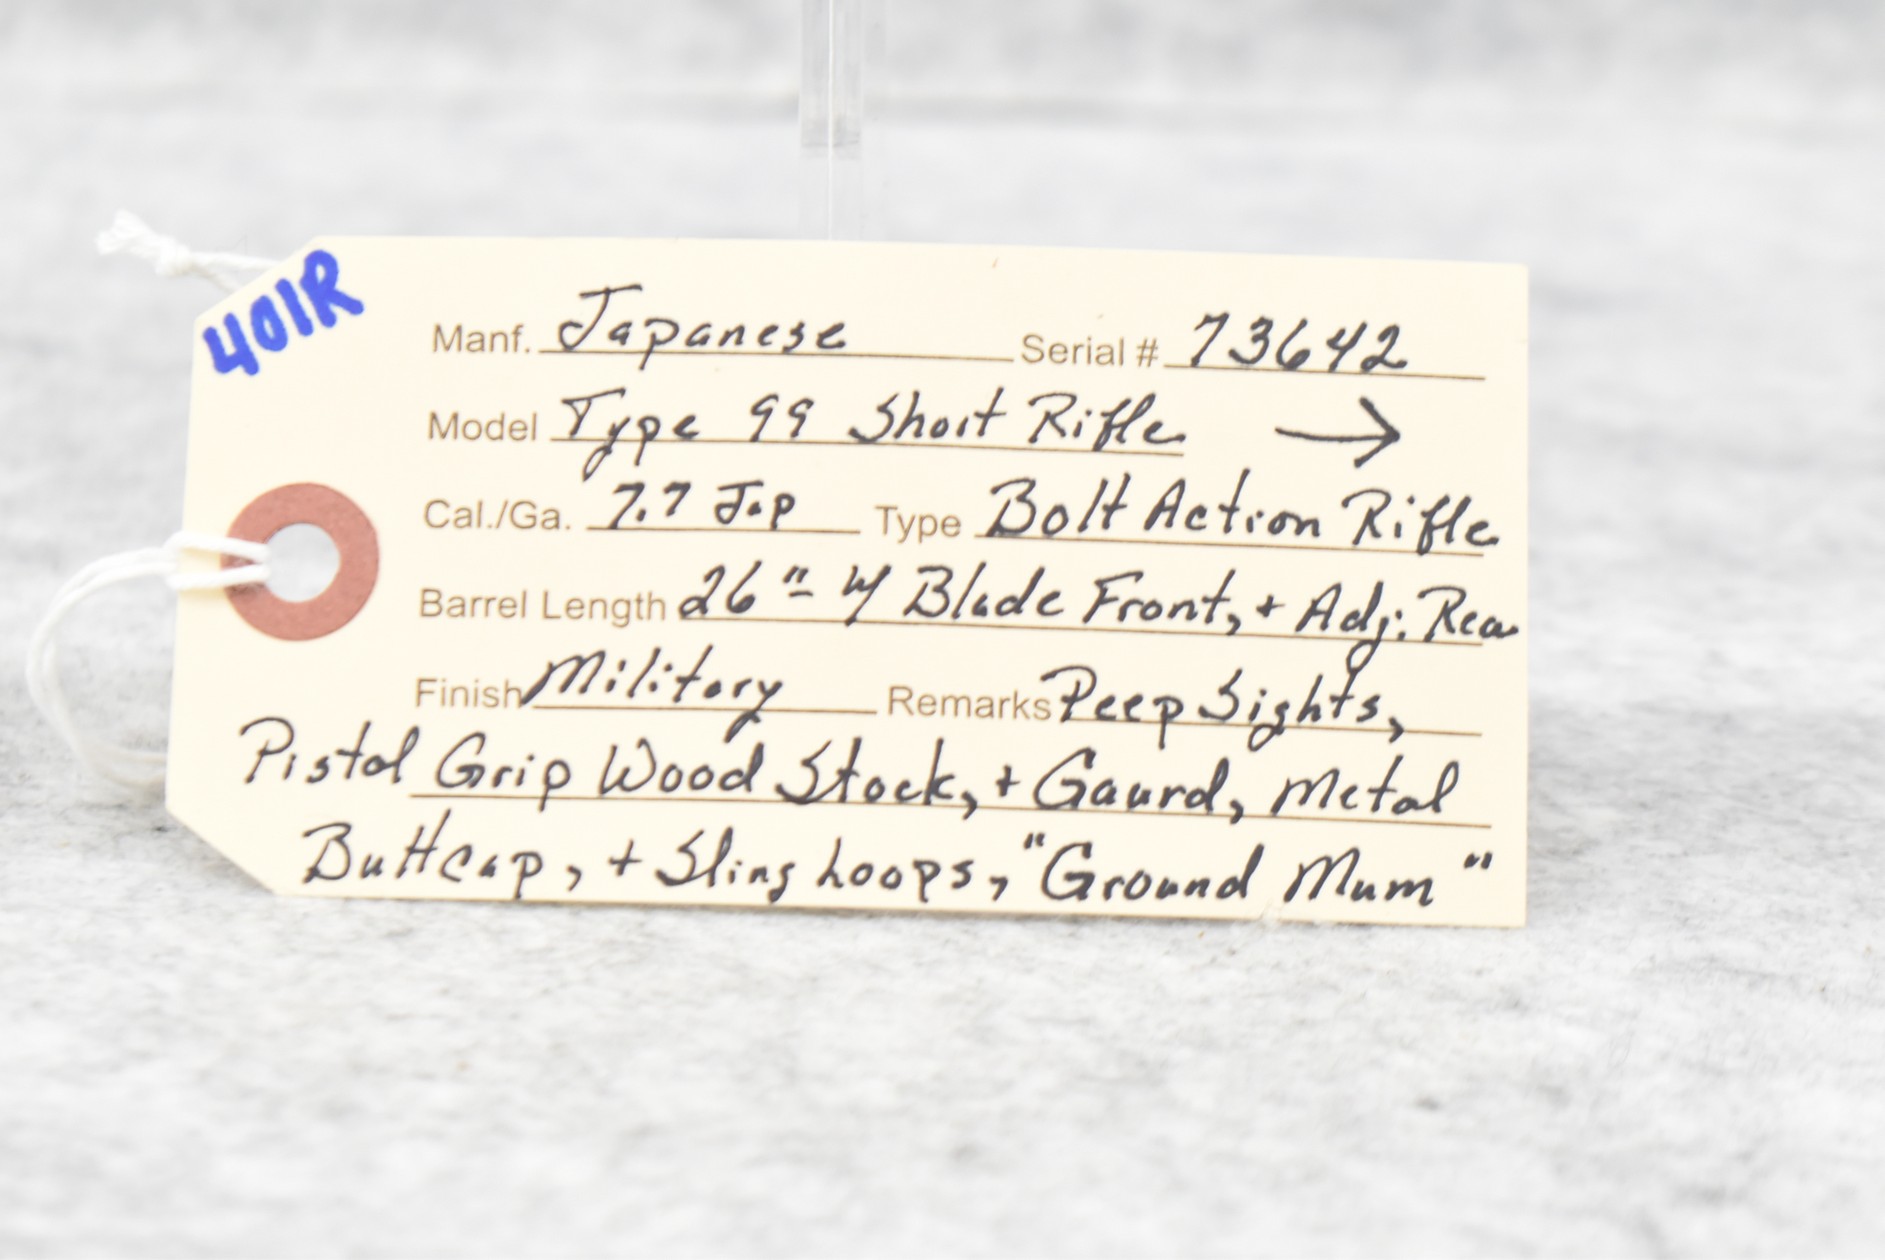 401R
Manf. Japanese Serial # 73642
Model Type 99 Short Rifle →
Cal./Ga. 7.7 Jap Type Bolt Action Rifle
Barrel Length 26" - w/ Blade Front, + Adj. Rear
Finish Military Remarks Peep Sights,
Pistol Grip Wood Stock, + Gaurd, Metal
Buttcap, + Sling Loops, "Ground Mum"